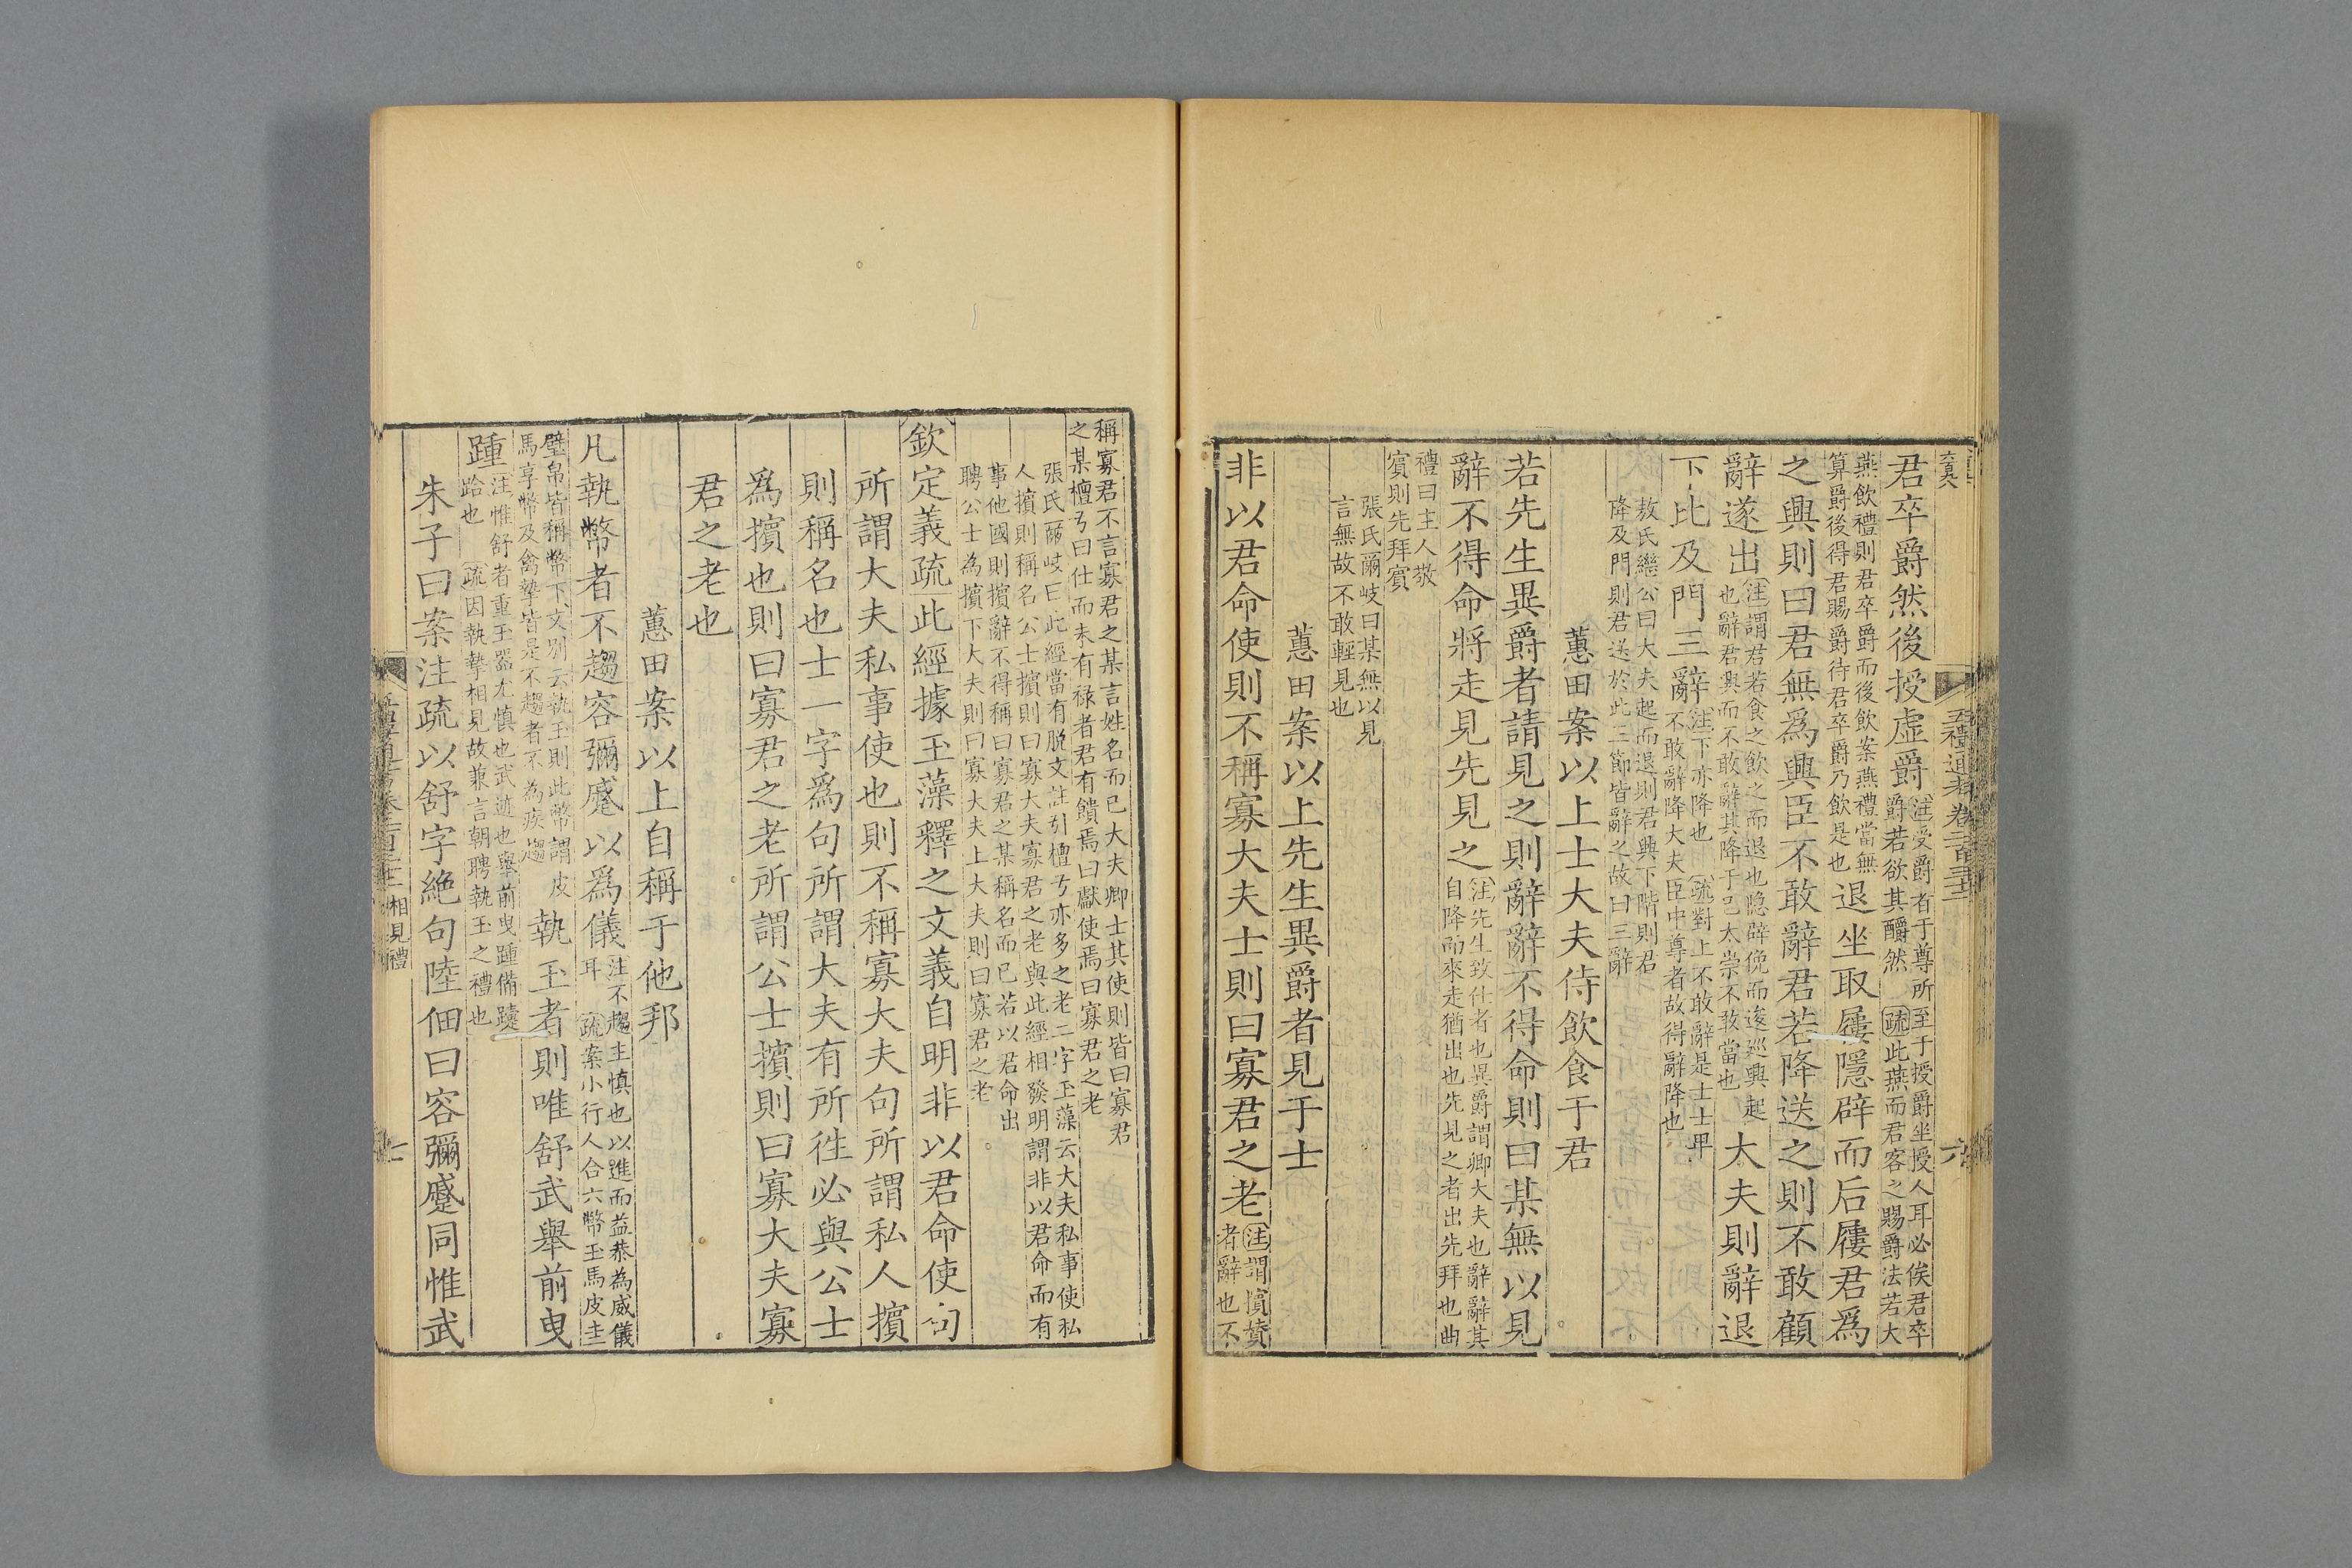 五禮通考 卷二百三十二
六
君卒爵然後授虛爵注受爵者于尊所至于授爵坐授人耳必俟君卒
爵若欲其釂然 疏此燕而君客之賜爵法若大
燕飲禮則君卒爵而後飲案燕禮當無
算爵後得君賜爵待君卒爵乃飲是也
退坐取屨隱辟而后屨君爲
之興則曰君無爲興臣不敢辭君若降送之則不敢顧
辭遂出注謂君若食之飲之而退也隱辟俛而逡巡興起
也辭君興而不敢辭其降于己太崇不敢當也
大夫則辭退
下比及門三辭注下亦降也 疏對上不敢辭是士士卑
不敢辭降大夫臣中尊者故得辭降也
敖氏繼公曰大夫起而退則君興下階則君
降及門則君送於此三節皆辭之故曰三辭
蕙田案以上士大夫侍飲食于君
若先生異爵者請見之則辭辭不得命則曰某無以見
辭不得命將走見先見之注先生致仕者也異爵謂卿大夫也辭辭其
自降而來走猶出也先見之者出先拜也曲
禮曰主人敬
賓則先拜賓
張氏爾岐曰某無以見
言無故不敢輕見也
蕙田案以上先生異爵者見于士
非以君命使則不稱寡大夫士則曰寡君之老注謂擯贊
者辭也不
稱寡君不言寡君之某言姓名而已大夫卿士其使則皆曰寡君
之某檀弓曰仕而未有祿者君有饋焉曰獻使焉曰寡君之老
張氏爾岐曰此經當有脫文註引檀弓亦多之老二字玉藻云大夫私事使私
人擯則稱名公士擯則曰寡大夫寡君之老與此經相發明謂非以君命而有
事他國則擯辭不得稱曰寡君之某稱名而已若以君命出
聘公士爲擯下大夫則曰寡大夫上大夫則曰寡君之老
欽定義疏此經據玉藻釋之文義自明非以君命使句
所謂大夫私事使也則不稱寡大夫句所謂私人擯
則稱名也士一字爲句所謂大夫有所往必與公士
爲擯也則曰寡君之老所謂公士擯則曰寡大夫寡
君之老也
蕙田案以上自稱于他邦
凡執幣者不趨容彌蹙以爲儀注不趨主慎也以進而益恭為威儀
耳 疏案小行人合六幣玉馬皮圭
璧帛皆稱幣下文別云執玉則此幣謂皮
馬享幣及禽摯皆是不趨者不為疾趨
執玉者則唯舒武舉前曳
踵注惟舒者重玉器尤慎也武迹也舉前曳踵備躓
跲也 疏因執摯相見故兼言朝聘執玉之禮也
朱子曰案注疏以舒字絕句陸佃曰容彌蹙同惟武
相見禮
七